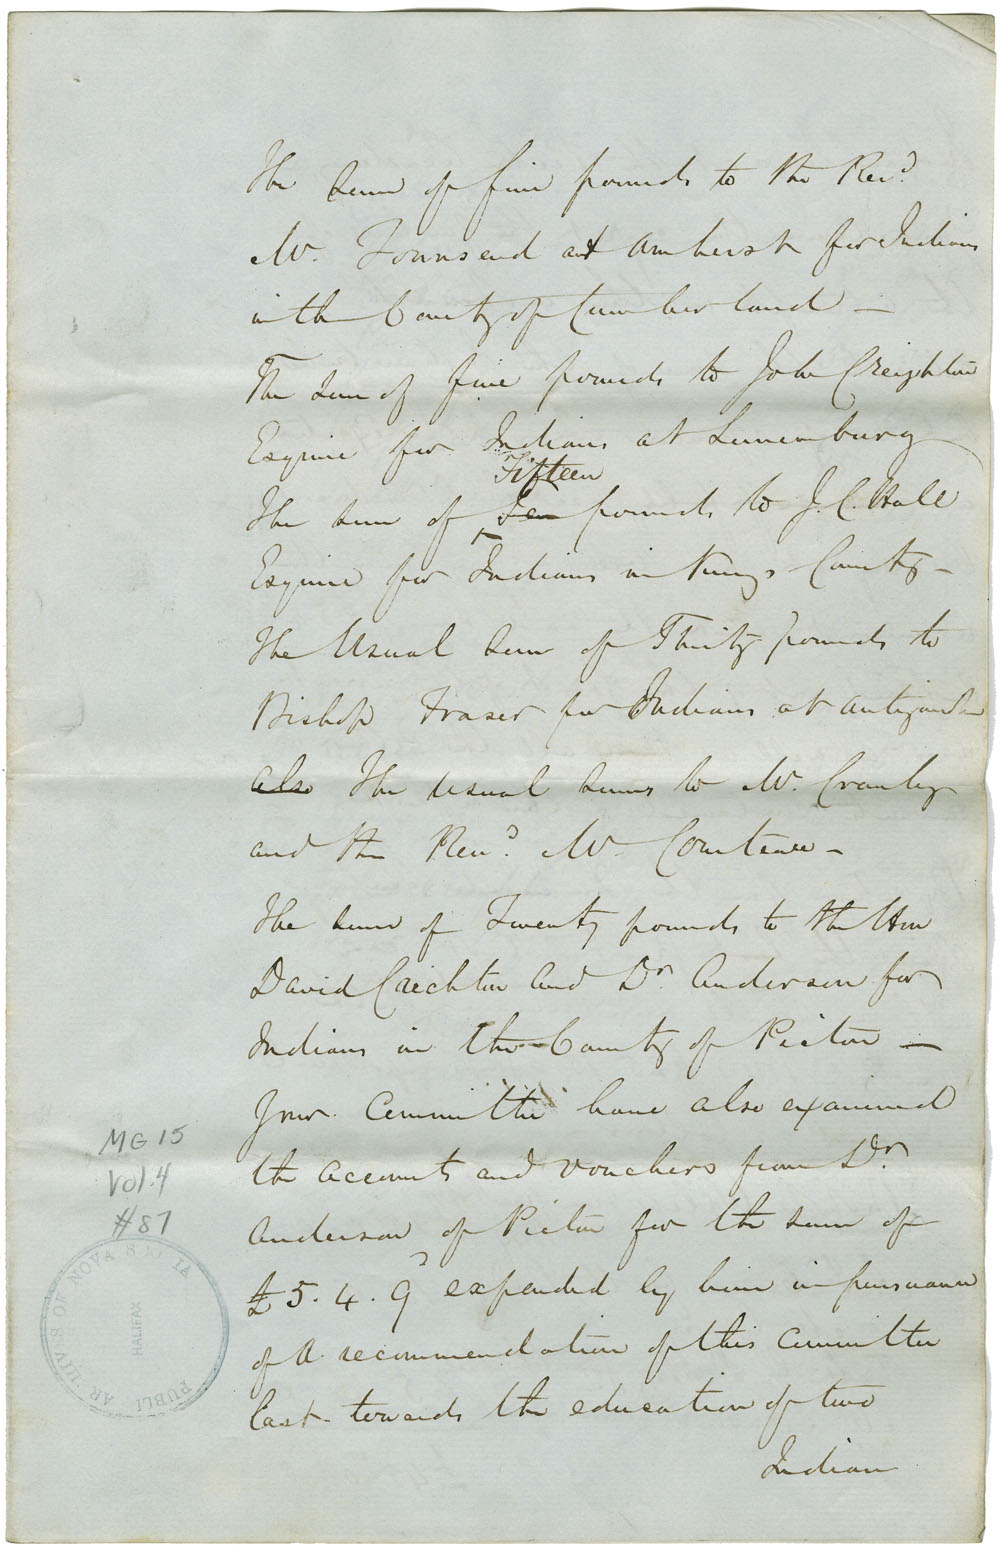 The Sum of five pounds to the Revd.
Mr. Townsend at Amherst for Indians
in the County of Cumberland —
The Sum of five pounds to John Creighton
Esquire for Indians at Lunenburg
Fifteen
The Sum of ‸ Ten pounds to J. C. Hall
Esquire for Indians in Kings County —
The Usual Sum of Thirty pounds to
Bishop Fraser for Indians at Antigonish
also The usual Sums to Mr. Crawley
and the Revd. Mr Courteau —
The Sum of Twenty pounds to the Hon
David Crichton and Dr. Anderson for
Indians in the County of Pictou —
Your Committee have also examined
the accounts and vouchers from Dr.
Anderson of Pictou for the Sum of
£5. 4. 9 expended by him in pursuance
of a recommendation of this Committee
last towards the education of two
Indian
MG 15
Vol. 4
#87
PUBLIC ARCHIVES OF NOVA SCOTIA
HALIFAX